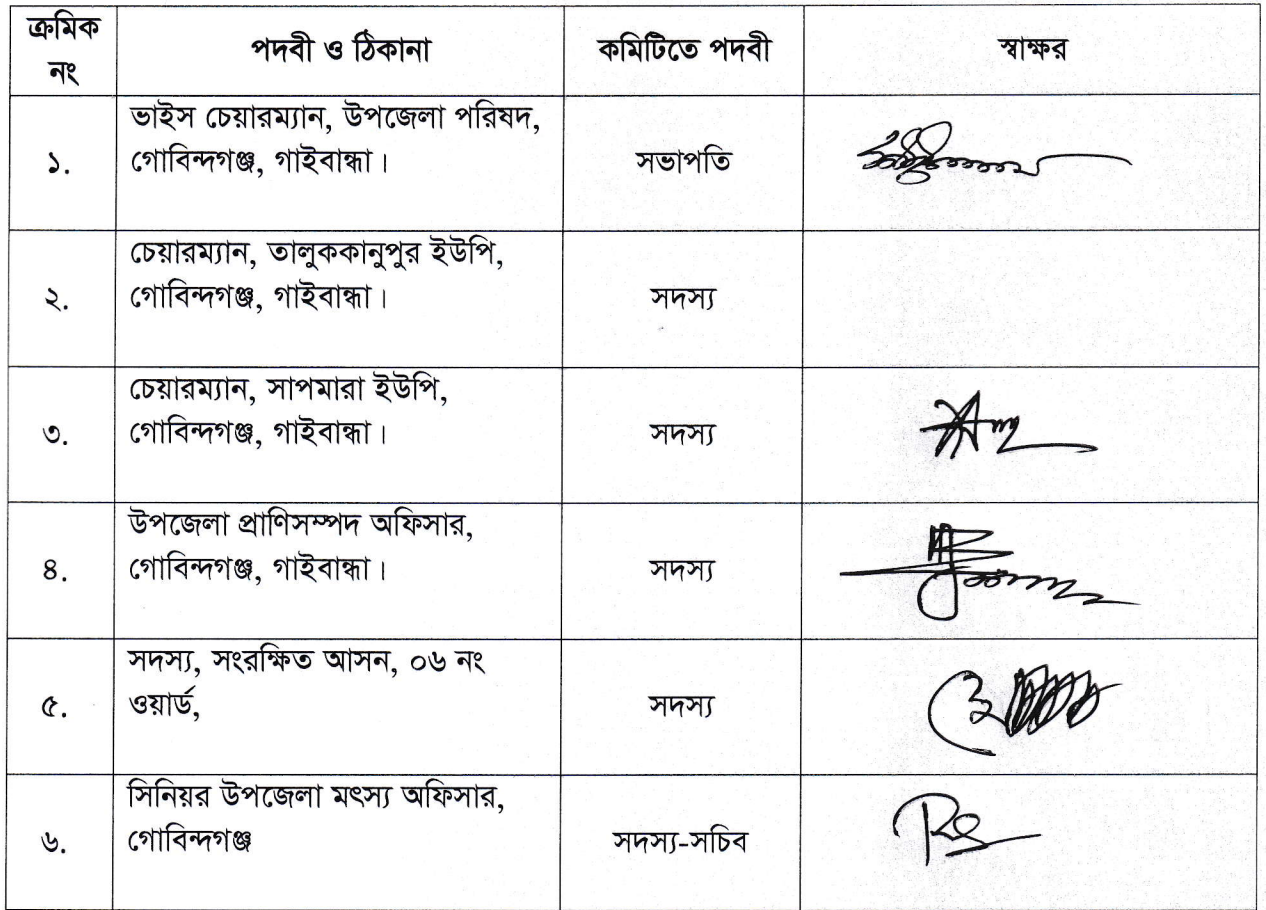 ক্রমিক
নং
পদবী ও ঠিকানা
কমিটিতে পদবী
স্বাক্ষর
১.
ভাইস চেয়ারম্যান, উপজেলা পরিষদ,
গোবিন্দগঞ্জ, গাইবান্ধা।
সভাপতি
২.
চেয়ারম্যান, তালুককানুপুর ইউপি,
গোবিন্দগঞ্জ, গাইবান্ধা।
সদস্য
৩.
চেয়ারম্যান, সাপমারা ইউপি,
গোবিন্দগঞ্জ, গাইবান্ধা।
সদস্য
৪.
উপজেলা প্রাণিসম্পদ অফিসার,
গোবিন্দগঞ্জ, গাইবান্ধা।
সদস্য
৫.
সদস্য, সংরক্ষিত আসন, ০৬ নং
ওয়ার্ড,
সদস্য
৬.
সিনিয়র উপজেলা মৎস্য অফিসার,
গোবিন্দগঞ্জ
সদস্য-সচিব